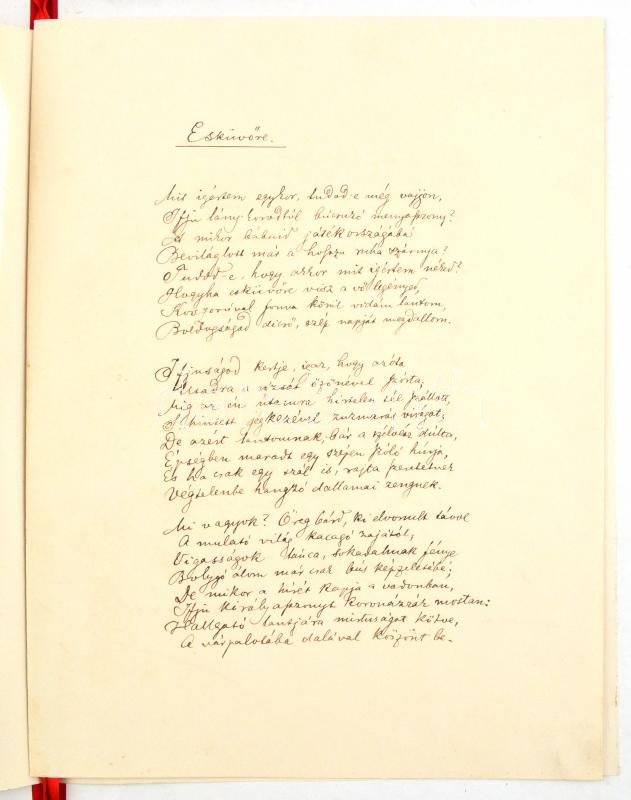 Esküvőre.
Mit igértem egykor, tudod-e még vajjon,
Ifju lány-korodtól búcsuzó menyasszony?
És mikor bábuid játékországába
Bevilágitott már a hosszu ruha szárnya?
Tudod-e, hogy akkor mit igértem néked?
Hogyha esküvőre visz a vőlegényed,
Koszorúval fonva körül vidám lantom,
Boldogságod dicső, szép napját megdallom.
Ifjuságod kertje, igaz, hogy azóta
Utadra a rózsát özönével szórta;
Mig az én utamra hirtelen tél szállott,
S hintett jégkezével zuzmarás virágot;
De azért lantomnak, bár a szélvész dúlta,
Épségben maradt egy szépen szóló húrja,
És ha csak egy szál is, rajta
Végtelenbe hangzó dallamai zengnek.
Mi vagyok? Öreg bárd, ki elvonult távol
A mulató világ kacagó zajától,
Vigasságok tánca, sokadalmak fénye
Bolygó álom már csak bús képzeletébe';
De mikor a hírét kapja a vadonban,
Ifju királyasszonyt koronáznak mostan:
Hallgató lantjára mirtuságat kötve,
A várpalotába dalával köszönt be.